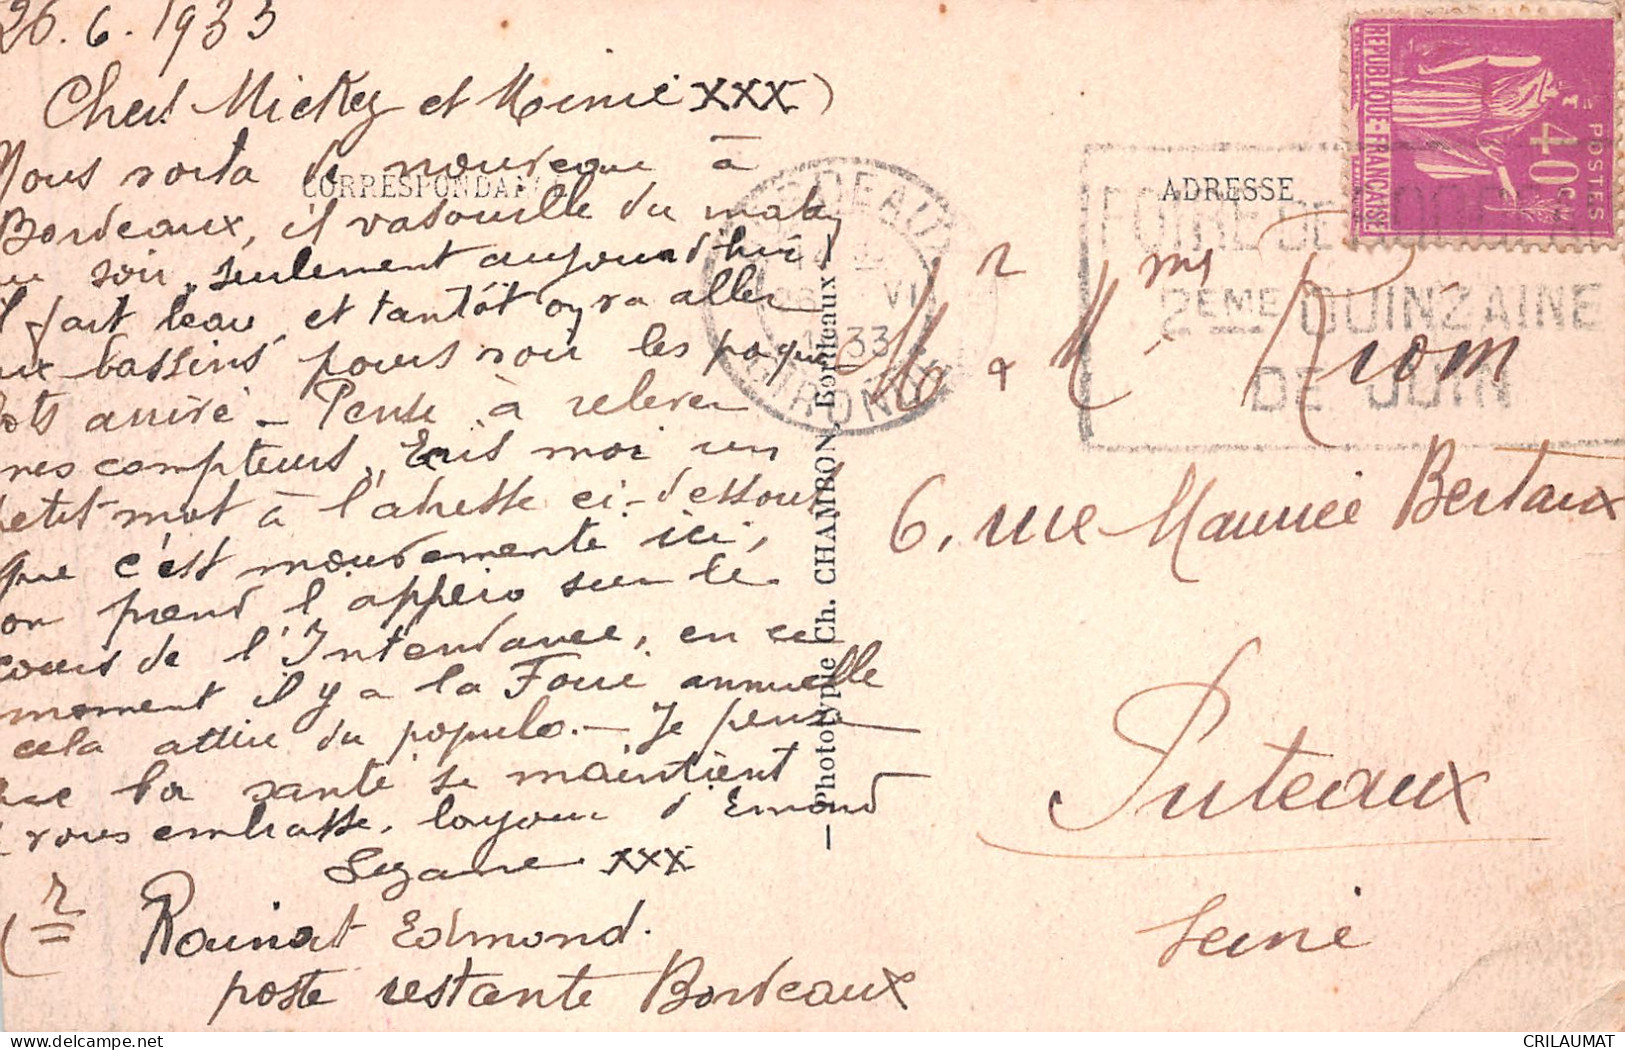 26.6.1933
Chers Mickey et Minie xxx)
CORRESPONDANCE
Nous voila de nouveau à
Bordeaux, il vasouille du matin
au soir, seulement aujourd'hui
il fait beau, et tantôt on ira aller
aux bassins pour voir les paque
bots arrivé – Pense à relever
mes compteurs. Ecris moi un
petit mot à l'adresse ci-dessous
que c'est mouvementé ici,
on prend l'appero sur le
cours de l'Intendance, en ce
moment il y a la Foire annuelle
cela attire du populo. – Je pense
que la santé se maintient
vous embrasse,
d'Edmond
Suzanne xxx
Mr Rainat Edmond.
poste restante Bordeaux
– Phototypie Ch. CHAMBON, Bordeaux
ADRESSE
REPUBLIQUE-FRANÇAISE
POSTES
40c
BORDEAUX
26 VI
1933
GIRONDE
FOIRE DE BORDEAUX
2EME QUINZAINE
DE JUIN
Mr & Mme Riom
6, rue Maurice Bertaux
Puteaux
Seine
delcampe.net
CRILAUMAT